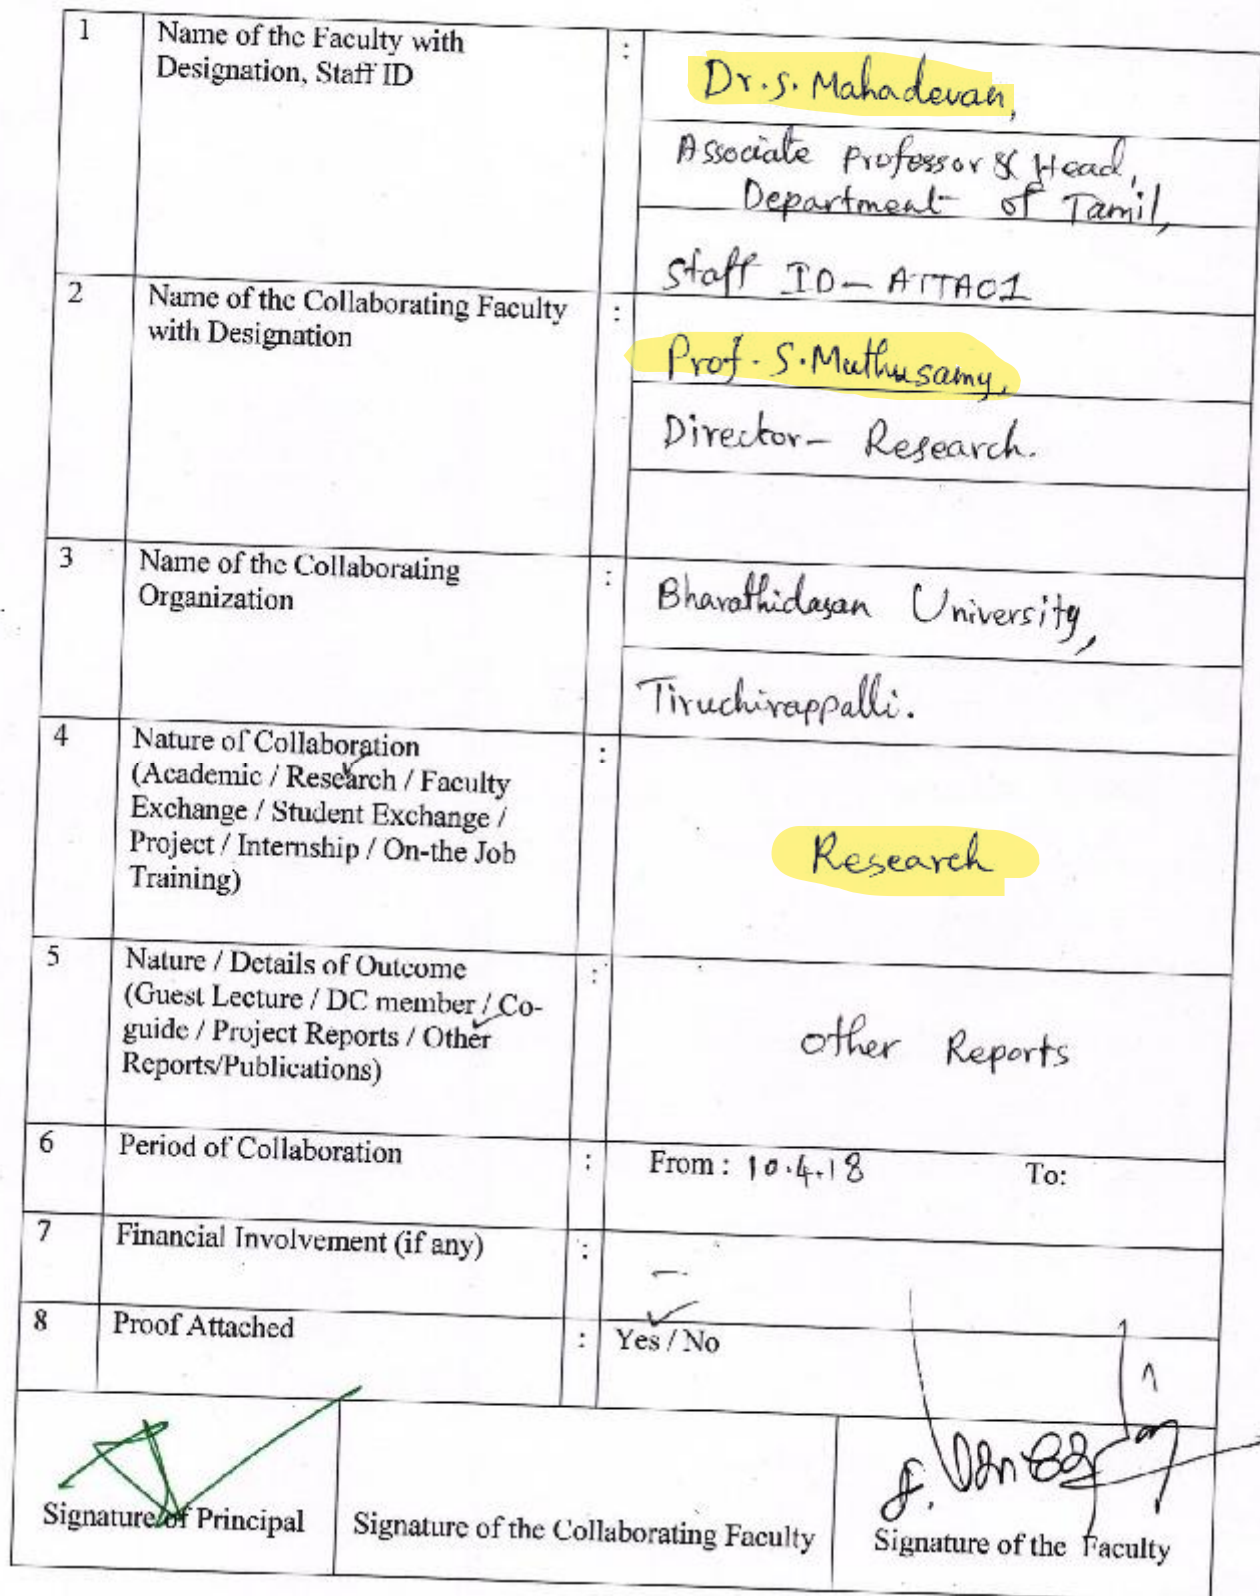 1
Name of the Faculty with
Designation, Staff ID
:
Dr. S. Mahadevan,
Associate Professor & Head,
Department of Tamil,
Staff ID - AITA01
2
Name of the Collaborating Faculty
with Designation
:
Prof. S. Muthusamy,
Director - Research.
3
Name of the Collaborating
Organization
:
Bharathidasan University,
Tiruchirappalli.
4
Nature of Collaboration
(Academic / Research / Faculty
Exchange / Student Exchange /
Project / Internship / On-the Job
Training)
:
Research
5
Nature / Details of Outcome
(Guest Lecture / DC member / Co-
guide / Project Reports / Other
Reports/Publications)
:
other Reports
6
Period of Collaboration
:
From : 10.4.18 To:
7
Financial Involvement (if any)
:
-
8
Proof Attached
:
Yes / No
Signature of Principal
Signature of the Collaborating Faculty
Signature of the Faculty